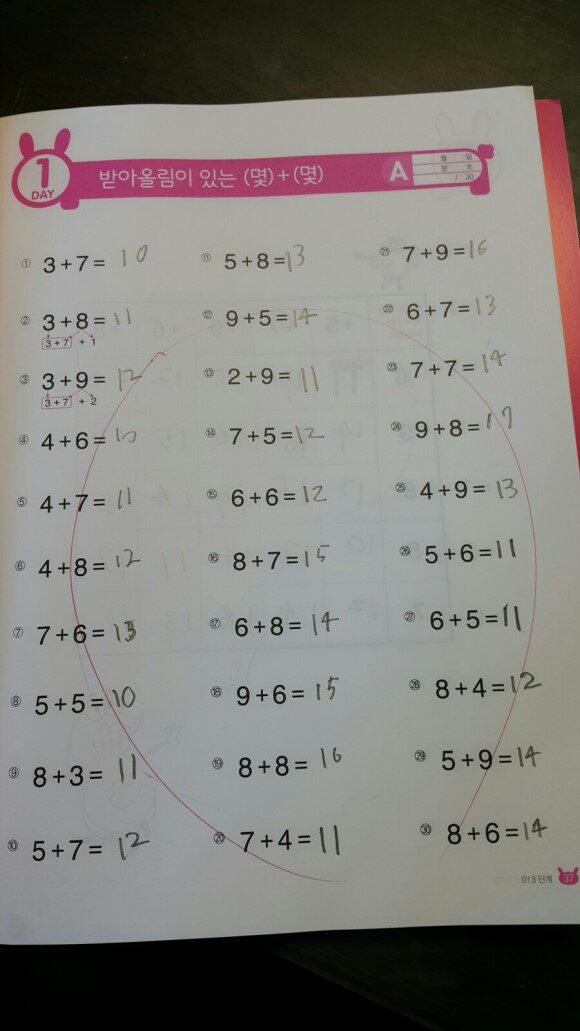 1
DAY
받아올림이 있는 (몇)+(몇)
A
월 일
분 초
/ 30
① 3+7= 10
② 3+8= 11
3+7 + 1
③ 3+9= 12
3+7 + 2
④ 4+6= 10
⑤ 4+7= 11
⑥ 4+8= 12
⑦ 7+6= 13
⑧ 5+5= 10
⑨ 8+3= 11
⑩ 5+7= 12
⑪ 5+8= 13
⑫ 9+5= 14
⑬ 2+9= 11
⑭ 7+5= 12
⑮ 6+6= 12
⑯ 8+7= 15
⑰ 6+8= 14
⑱ 9+6= 15
⑲ 8+8= 16
⑳ 7+4= 11
㉑ 7+9= 16
㉒ 6+7= 13
㉓ 7+7= 14
㉔ 9+8= 17
㉕ 4+9= 13
㉖ 5+6= 11
㉗ 6+5= 11
㉘ 8+4= 12
㉙ 5+9= 14
㉚ 8+6= 14
013 단계 37